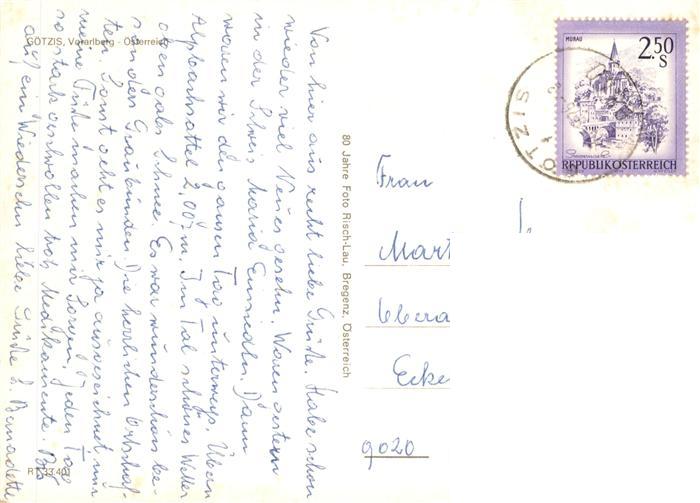 GÖTZIS, Vorarlberg - Österreich
Von hier aus recht liebe Grüße. Habe schon
wieder viel Neues gesehn. Waren gestern
in der Schweiz Maria Einsiedln. Dann
waren wir den ganzen Tag unterwegs. Übern
2.007 m. Im Tal schönes Wetter
oben aber Schnee. Es war wunderschön be-
sonders Graubünden. Die herrlichen Ortschaf-
ten. Sonst geht es mir ja ausgezeichnet nur
meine Füße machen mir Sorgen. Jeden Tag
so stark geschwollen trotz Medikamente. Bis
auf ein Wiedersehn liebe Grüße b. Bernadette
RT 33 401
80 Jahre Foto Risch-Lau, Bregenz, Österreich
MURAU
2.50
S
REPUBLIK ÖSTERREICH
GÖTZIS
Frau
Mart
Ecke
9020